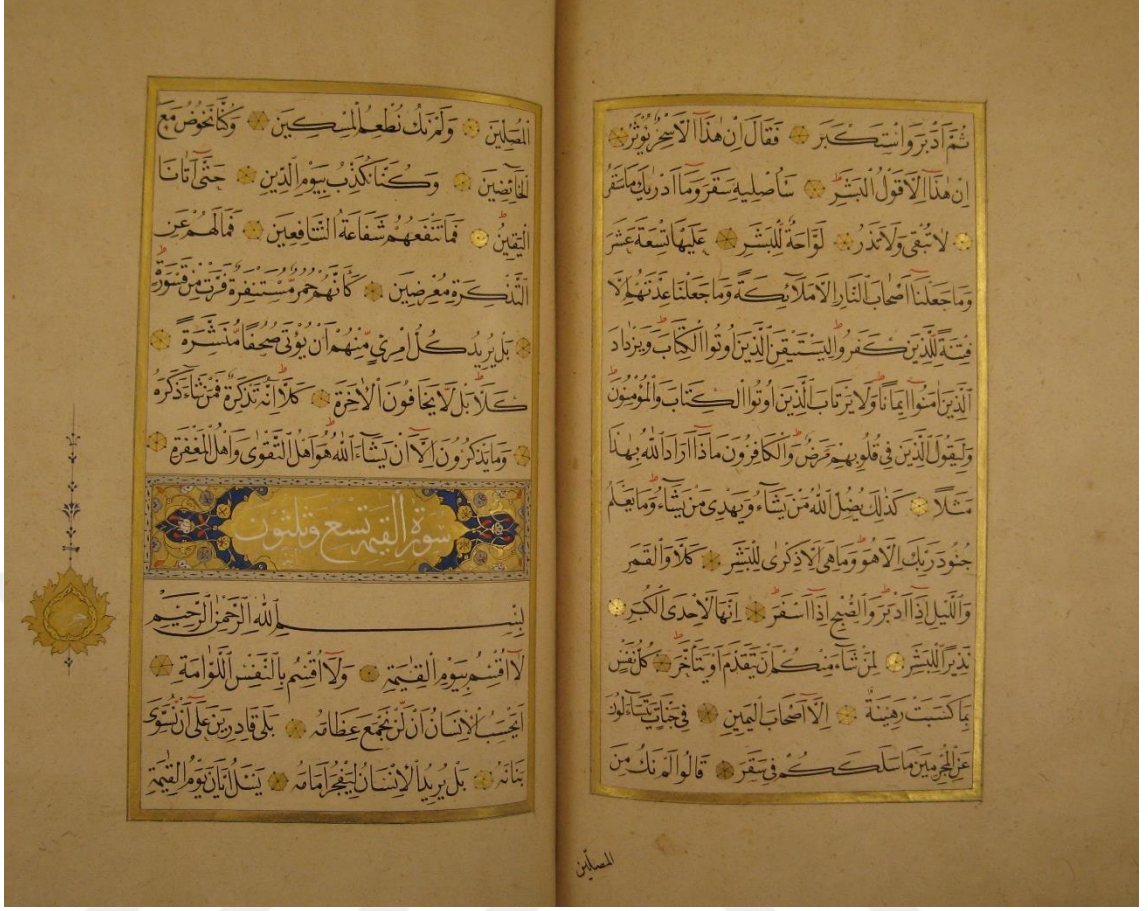 ثُمَّ اَدْبَرَ وَاسْتَكْبَرَ فَقَالَ اِنْ هٰذَٓا اِلَّا سِحْرٌ يُؤْثَرُ
اِنْ هٰذَٓا اِلَّا قَوْلُ الْبَشَرِ سَاُصْلِيهِ سَقَرَ وَمَٓا اَدْرٰيكَ مَا سَقَرُ
لَا تُبْقِى وَلَا تَذَرُ لَوَّاحَةٌ لِلْبَشَرِ عَلَيْهَا تِسْعَةَ عَشَرَ
وَمَا جَعَلْنَٓا اَصْحَابَ النَّارِ اِلَّا مَلٰٓائِكَةً وَمَا جَعَلْنَا عِدَّتَهُمْ اِلَّا
فِتْنَةً لِلَّذِينَ كَفَرُوا لِيَسْتَيْقِنَ الَّذِينَ اُوتُوا الْكِتَابَ وَيَزْدَادَ
الَّذِينَ اٰمَنُٓوا اِيمَانًا وَلَا يَرْتَابَ الَّذِينَ اُوتُوا الْكِتَابَ وَالْمُؤْمِنُونَ
وَلِيَقُولَ الَّذِينَ فِى قُلُوبِهِمْ مَرَضٌ وَالْكَافِرُونَ مَاذَٓا اَرَادَ اللّٰهُ بِهٰذَا
مَثَلًا كَذٰلِكَ يُضِلُّ اللّٰهُ مَنْ يَشَٓاءُ وَيَهْدِى مَنْ يَشَٓاءُ وَمَا يَعْلَمُ
جُنُودَ رَبِّكَ اِلَّا هُوَ وَمَا هِىَ اِلَّا ذِكْرٰى لِلْبَشَرِ كَلَّا وَالْقَمَرِ
وَالَّيْلِ اِذْ اَدْبَرَ وَالصُّبْحِ اِذَٓا اَسْفَرَ اِنَّهَا لَاِحْدَى الْكُبَرِ
نَذِيرًا لِلْبَشَرِ لِمَنْ شَٓاءَ مِنْكُمْ اَنْ يَتَقَدَّمَ اَوْ يَتَاَخَّرَ كُلُّ نَفْسٍ
بِمَا كَسَبَتْ رَهِينَةٌ اِلَّٓا اَصْحَابَ الْيَمِينِ فِى جَنَّاتٍ يَتَسَٓاءَلُونَ
عَنِ الْمُجْرِمِينَ مَا سَلَكَكُمْ فِى سَقَرَ قَالُوا لَمْ نَكُ مِنَ
المصلين
الْمُصَلِّينَ وَلَمْ نَكُ نُطْعِمُ الْمِسْكِينَ وَكُنَّا نَخُوضُ مَعَ
الْخَٓائِضِينَ وَكُنَّا نُكَذِّبُ بِيَوْمِ الدِّينِ حَتّٰٓى اَتَانَا
الْيَقِينُ فَمَا تَنْفَعُهُمْ شَفَاعَةُ الشَّافِعِينَ فَمَا لَهُمْ عَنِ
التَّذْكِرَةِ مُعْرِضِينَ كَاَنَّهُمْ حُمُرٌ مُسْتَنْفِرَةٌ فَرَّتْ مِنْ قَسْوَرَةٍ
بَلْ يُرِيدُ كُلُّ امْرِئٍ مِنْهُمْ اَنْ يُؤْتٰى صُحُفًا مُنَشَّرَةً
كَلَّا بَلْ لَا يَخَافُونَ الْاٰخِرَةَ كَلَّٓا اِنَّهُ تَذْكِرَةٌ فَمَنْ شَٓاءَ ذَكَرَهُ
وَمَا يَذْكُرُونَ اِلَّٓا اَنْ يَشَٓاءَ اللّٰهُ هُوَ اَهْلُ التَّقْوٰى وَاَهْلُ الْمَغْفِرَةِ
سورة القيمة تسع وثلثون
بِسْمِ اللّٰهِ الرَّحْمٰنِ الرَّحِيمِ
لَٓا اُقْسِمُ بِيَوْمِ الْقِيٰمَةِ وَلَٓا اُقْسِمُ بِالنَّفْسِ اللَّوَّامَةِ
اَيَحْسَبُ الْاِنْسَانُ اَلَّنْ نَجْمَعَ عِظَامَهُ بَلٰى قَادِرِينَ عَلٰٓى اَنْ نُسَوِّىَ
بَنَانَهُ بَلْ يُرِيدُ الْاِنْسَانُ لِيَفْجُرَ اَمَامَهُ يَسْئَلُ اَيَّانَ يَوْمُ الْقِيٰمَةِ